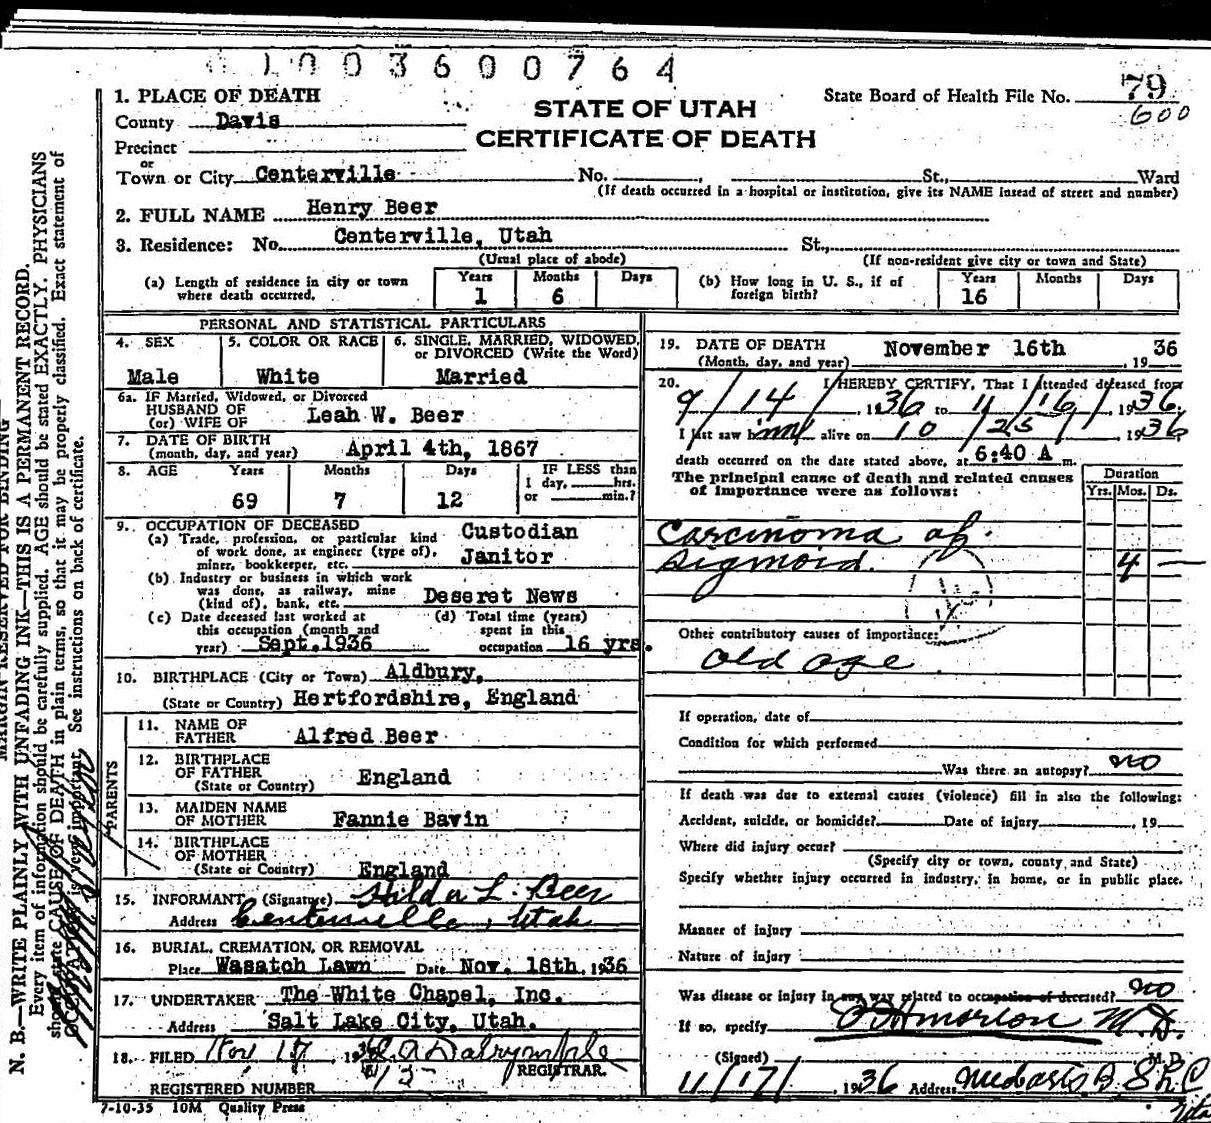 1003600764
1. PLACE OF DEATH
STATE OF UTAH
CERTIFICATE OF DEATH
State Board of Health File No. 79
600
County Davis
Precinct
or
Town or City Centerville No. , St., Ward
(If death occurred in a hospital or institution, give its NAME insead of street and number)
2. FULL NAME Henry Beer
3. Residence: No. Centerville, Utah St.,
(Usual place of abode) (If non-resident give city or town and State)
(a) Length of residence in city or town where death occurred. Years 1 Months 6 Days
(b) How long in U. S., if of foreign birth? Years 16 Months Days
PERSONAL AND STATISTICAL PARTICULARS
4. SEX Male
5. COLOR OR RACE White
6. SINGLE, MARRIED, WIDOWED, or DIVORCED (Write the Word) Married
6a. IF Married, Widowed, or Divorced
HUSBAND OF
(or) WIFE OF Leah W. Beer
7. DATE OF BIRTH
(month, day, and year) April 4th, 1867
8. AGE Years Months Days IF LESS than
1 day, hrs.
or min.?
69 7 12
9. OCCUPATION OF DECEASED
(a) Trade, profession, or particular kind of work done, as engineer (type of), miner, bookkeeper, etc. Custodian Janitor
(b) Industry or business in which work was done, as railway, mine (kind of), bank, etc. Deseret News
(c) Date deceased last worked at this occupation (month and year) Sept. 1936
(d) Total time (years) spent in this occupation 16 yrs.
10. BIRTHPLACE (City or Town) Aldbury,
(State or Country) Hertfordshire, England
PARENTS
11. NAME OF FATHER Alfred Beer
12. BIRTHPLACE OF FATHER
(State or Country) England
13. MAIDEN NAME OF MOTHER Fannie Bavin
14. BIRTHPLACE OF MOTHER
(State or Country) England
15. INFORMANT (Signature) Hilda L. Beer
Address Centerville, Utah
16. BURIAL, CREMATION, OR REMOVAL
Place Wasatch Lawn Date Nov. 18th, 1936
17. UNDERTAKER The White Chapel, Inc.
Address Salt Lake City, Utah.
18. FILED Nov 17, 1936 Dalrymple
REGISTRAR.
REGISTERED NUMBER
7-10-35 10M Quality Press
19. DATE OF DEATH
(Month, day, and year) November 16th, 1936
20. I HEREBY CERTIFY, That I attended deceased from
9/14/, 1936 to 11/16/, 1936.
I last saw him alive on 10/25, 1936
death occurred on the date stated above, at 6:40 A m.
The principal cause of death and related causes of importance were as follows:
Duration
Yrs. Mos. Ds.
Carcinoma of
Sigmoid. 4 —
Other contributory causes of importance:
Old age
If operation, date of
Condition for which performed
Was there an autopsy? no
If death was due to external causes (violence) fill in also the following:
Accident, suicide, or homicide? Date of injury , 19
Where did injury occur?
(Specify city or town, county and State)
Specify whether injury occurred in industry, in home, or in public place.
Manner of injury
Nature of injury
Was disease or injury in any way related to occupation of deceased? no
If so, specify
(Signed) Morton M.D. M.D.
11/17/, 1936 Address Med Arts B SLC
Utah
MARGIN RESERVED FOR BINDING
N. B.—WRITE PLAINLY WITH UNFADING INK—THIS IS A PERMANENT RECORD.
Every item of information should be carefully supplied. AGE should be stated EXACTLY. PHYSICIANS
should state CAUSE OF DEATH in plain terms, so that it may be properly classified. Exact statement of
OCCUPATION is very important. See instructions on back of certificate.